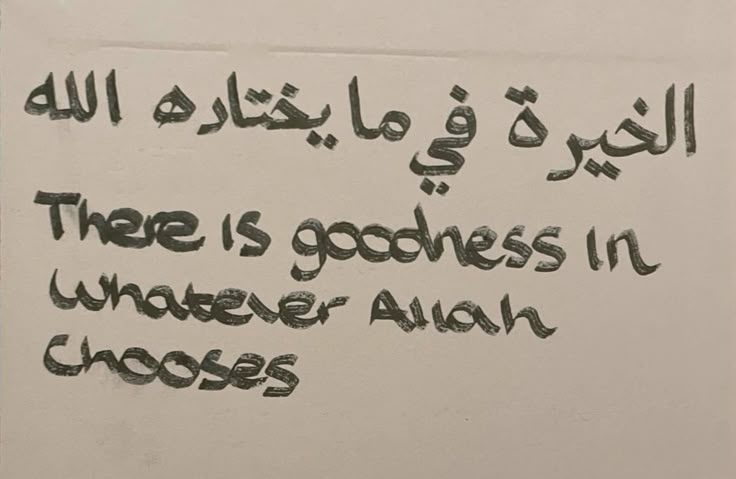 الخيرة في ما يختاره الله
There is goodness in
whatever Allah
chooses